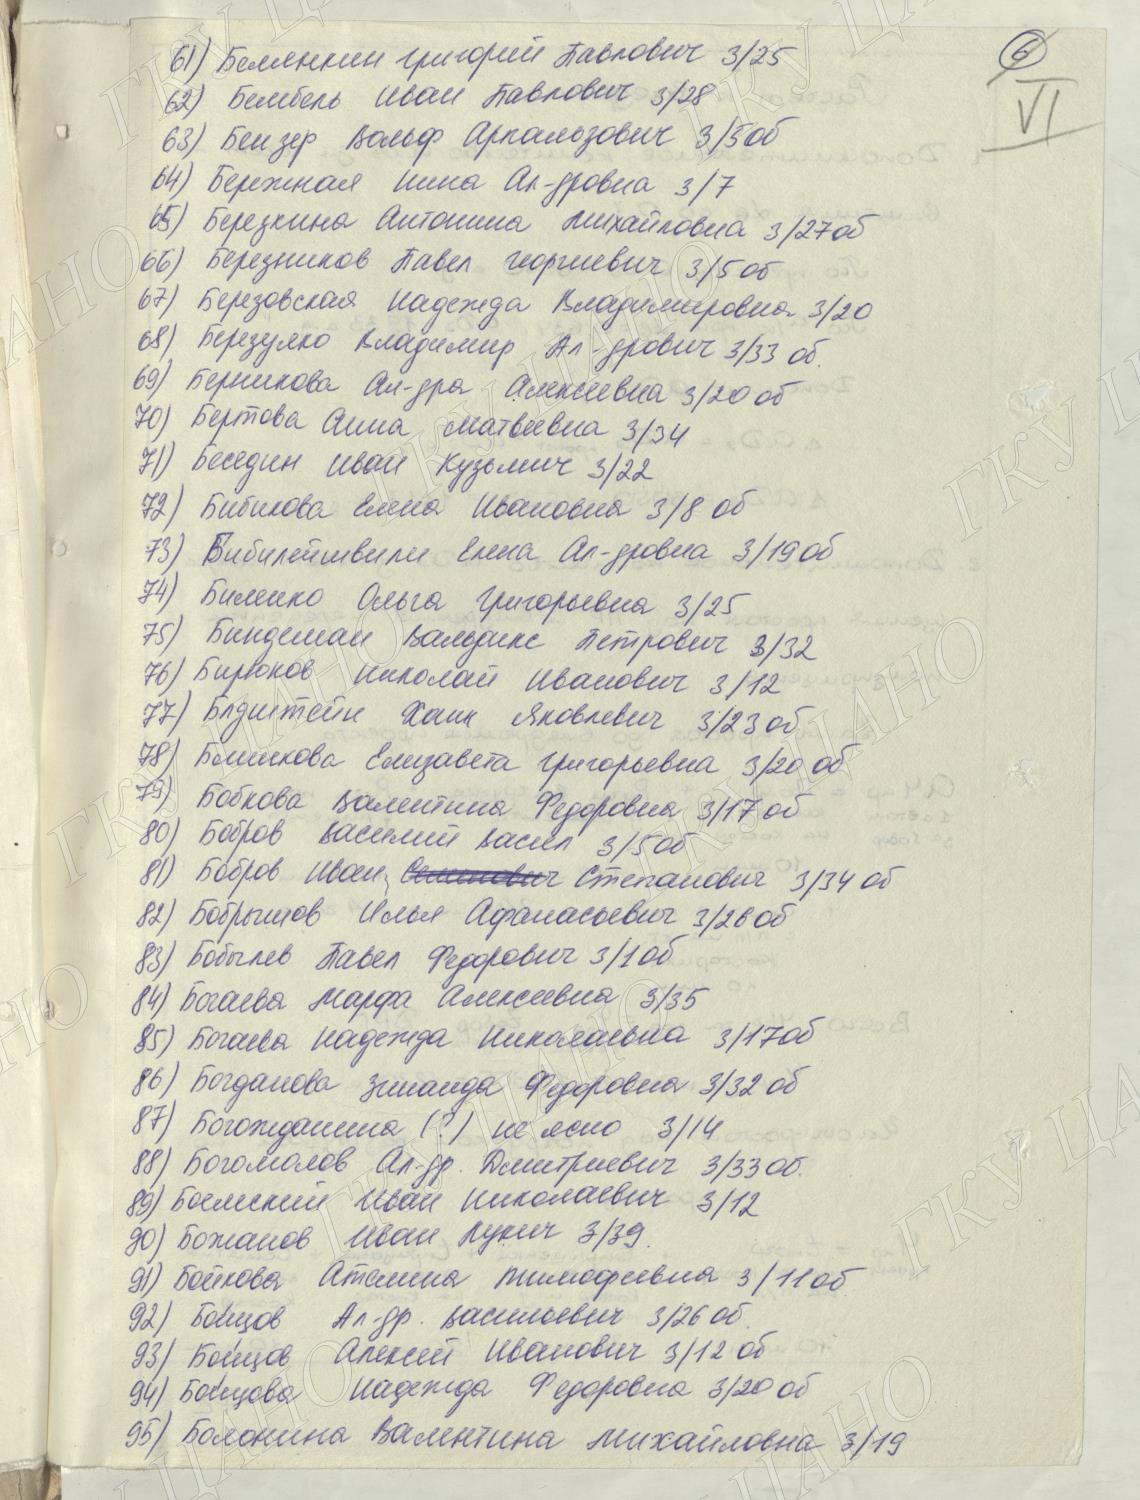 6
VI
61) Белянкин Григорий Павлович 3/25
62) Бембель Иван Павлович 3/28
63) Бензер Вольф 3/5об
64) Бережная Нина Ал-дровна 3/7
65) Березкина Антонина Михайловна 3/27об
66) Березников Павел Георгиевич 3/5об
67) Березовская Надежда Владимировна 3/20
68) Березулко Владимир Ал-дрович 3/33 об.
69) Берникова Ал-дра Алексеевна 3/20об
70) Бертова Анна Матвеевна 3/34
71) Беседин Иван Кузьмич 3/22
72) Бибикова Елена Ивановна 3/8 об
73) Бибилейшвили Елена Ал-дровна 3/19об
74) Биленко Ольга Григорьевна 3/25
75) Биндеман Петрович 3/32
76) Бирюков Николай Иванович 3/12
77) Хаим Яковлевич 3/23 об
78) Блинкова Елизавета Григорьевна 3/20 об
79) Бобкова Валентина Федоровна 3/17 об
80) Бобров Василий Васил 3/5об
81) Бобров Иван Семенович Степанович 3/34 об
82) Бобрышов Илья Афанасьевич 3/26об
83) Бобылев Павел Федорович 3/1об
84) Богаева Марфа Алексеевна 3/35
85) Богаева Надежда Николаевна 3/17об
86) Богданова Зинаида Федоровна 3/32 об
87) Богожданина (?) не ясно 3/14
88) Богомолов Ал-др. Дмитриевич 3/33об.
89) Боемский Иван Николаевич 3/12
90) Божанов Иван Лукич 3/39.
91) Бойкова Тимофеевна 3/11об
92) Бойцов Ал-др. Васильевич 3/26об.
93) Бойцов Алексей Иванович 3/12 об
94) Бойцова Надежда Федоровна 3/20об
95) Болонина Валентина Михайловна 3/19
ГКУ ЦАНО